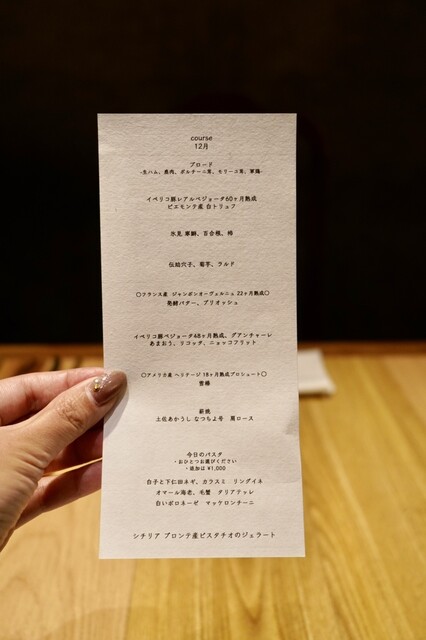 course
12月
ブロード
-生ハム、鹿肉、ポルチーニ茸、モリーユ茸、軍鶏-
イベリコ豚レアルベジョータ60ヶ月熟成
ピエモンテ産 白トリュフ
氷見 寒鰤、百合根、柿
伝助穴子、菊芋、ラルド
○フランス産 ジャンボンオーヴェルニュ 22ヶ月熟成○
発酵バター、ブリオッシュ
イベリコ豚ベジョータ48ヶ月熟成、グアンチャーレ
あまおう、リコッタ、ニョッコフリット
○アメリカ産 ヘリテージ 18ヶ月熟成プロシュート○
薪焼
土佐あかうし なつちよ号 肩ロース
今日のパスタ
・おひとつお選びください
・追加は ¥1,000
白子と下仁田ネギ、カラスミ リングイネ
オマール海老、毛蟹 タリアテッレ
白いボロネーゼ マッケロンチーニ
シチリア ブロンテ産ピスタチオのジェラート